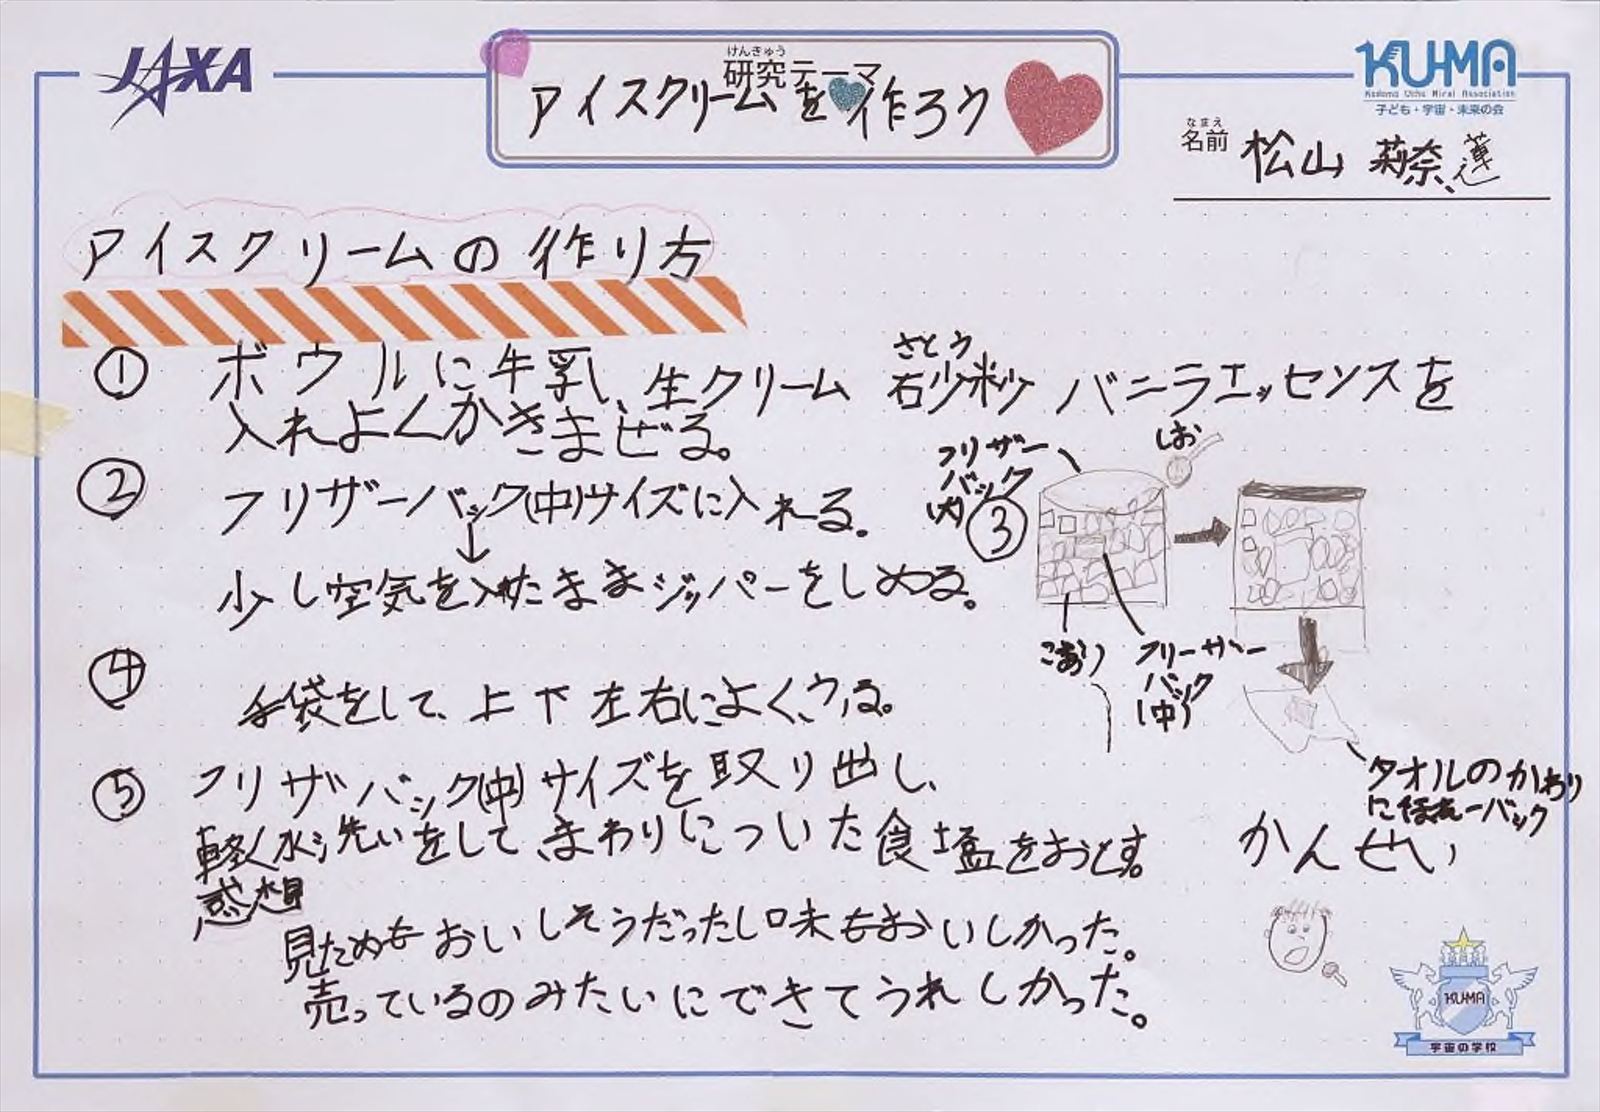 JAXA
けんきゅう
研究テーマ
アイスクリームを作ろう
KUMA
Kodomo Uchu Mirai Association
子ども・宇宙・未来の会
なまえ
名前 松山 莉奈、蓮
アイスクリームの作り方
① ボウルに牛乳、生クリーム 砂糖 バニラエッセンスを
さとう
入れよくかきまぜる。
② フリザーバック(中)サイズに入れる。
↓
少し空気を入れたままジッパーをしめる。
③
フリザー
バック
しお
こおり
フリーザー
バック
(中)
タオルのかわり
バック
④ 手袋をして、上下左右によくふる。
⑤ フリザバック(中)サイズを取り出し、
軽く水洗いをして、まわりについた食塩をおとす。
かんせい
感想
見ためもおいしそうだったし味もおいしかった。
売っているのみたいにできてうれしかった。
KUMA
宇宙の学校